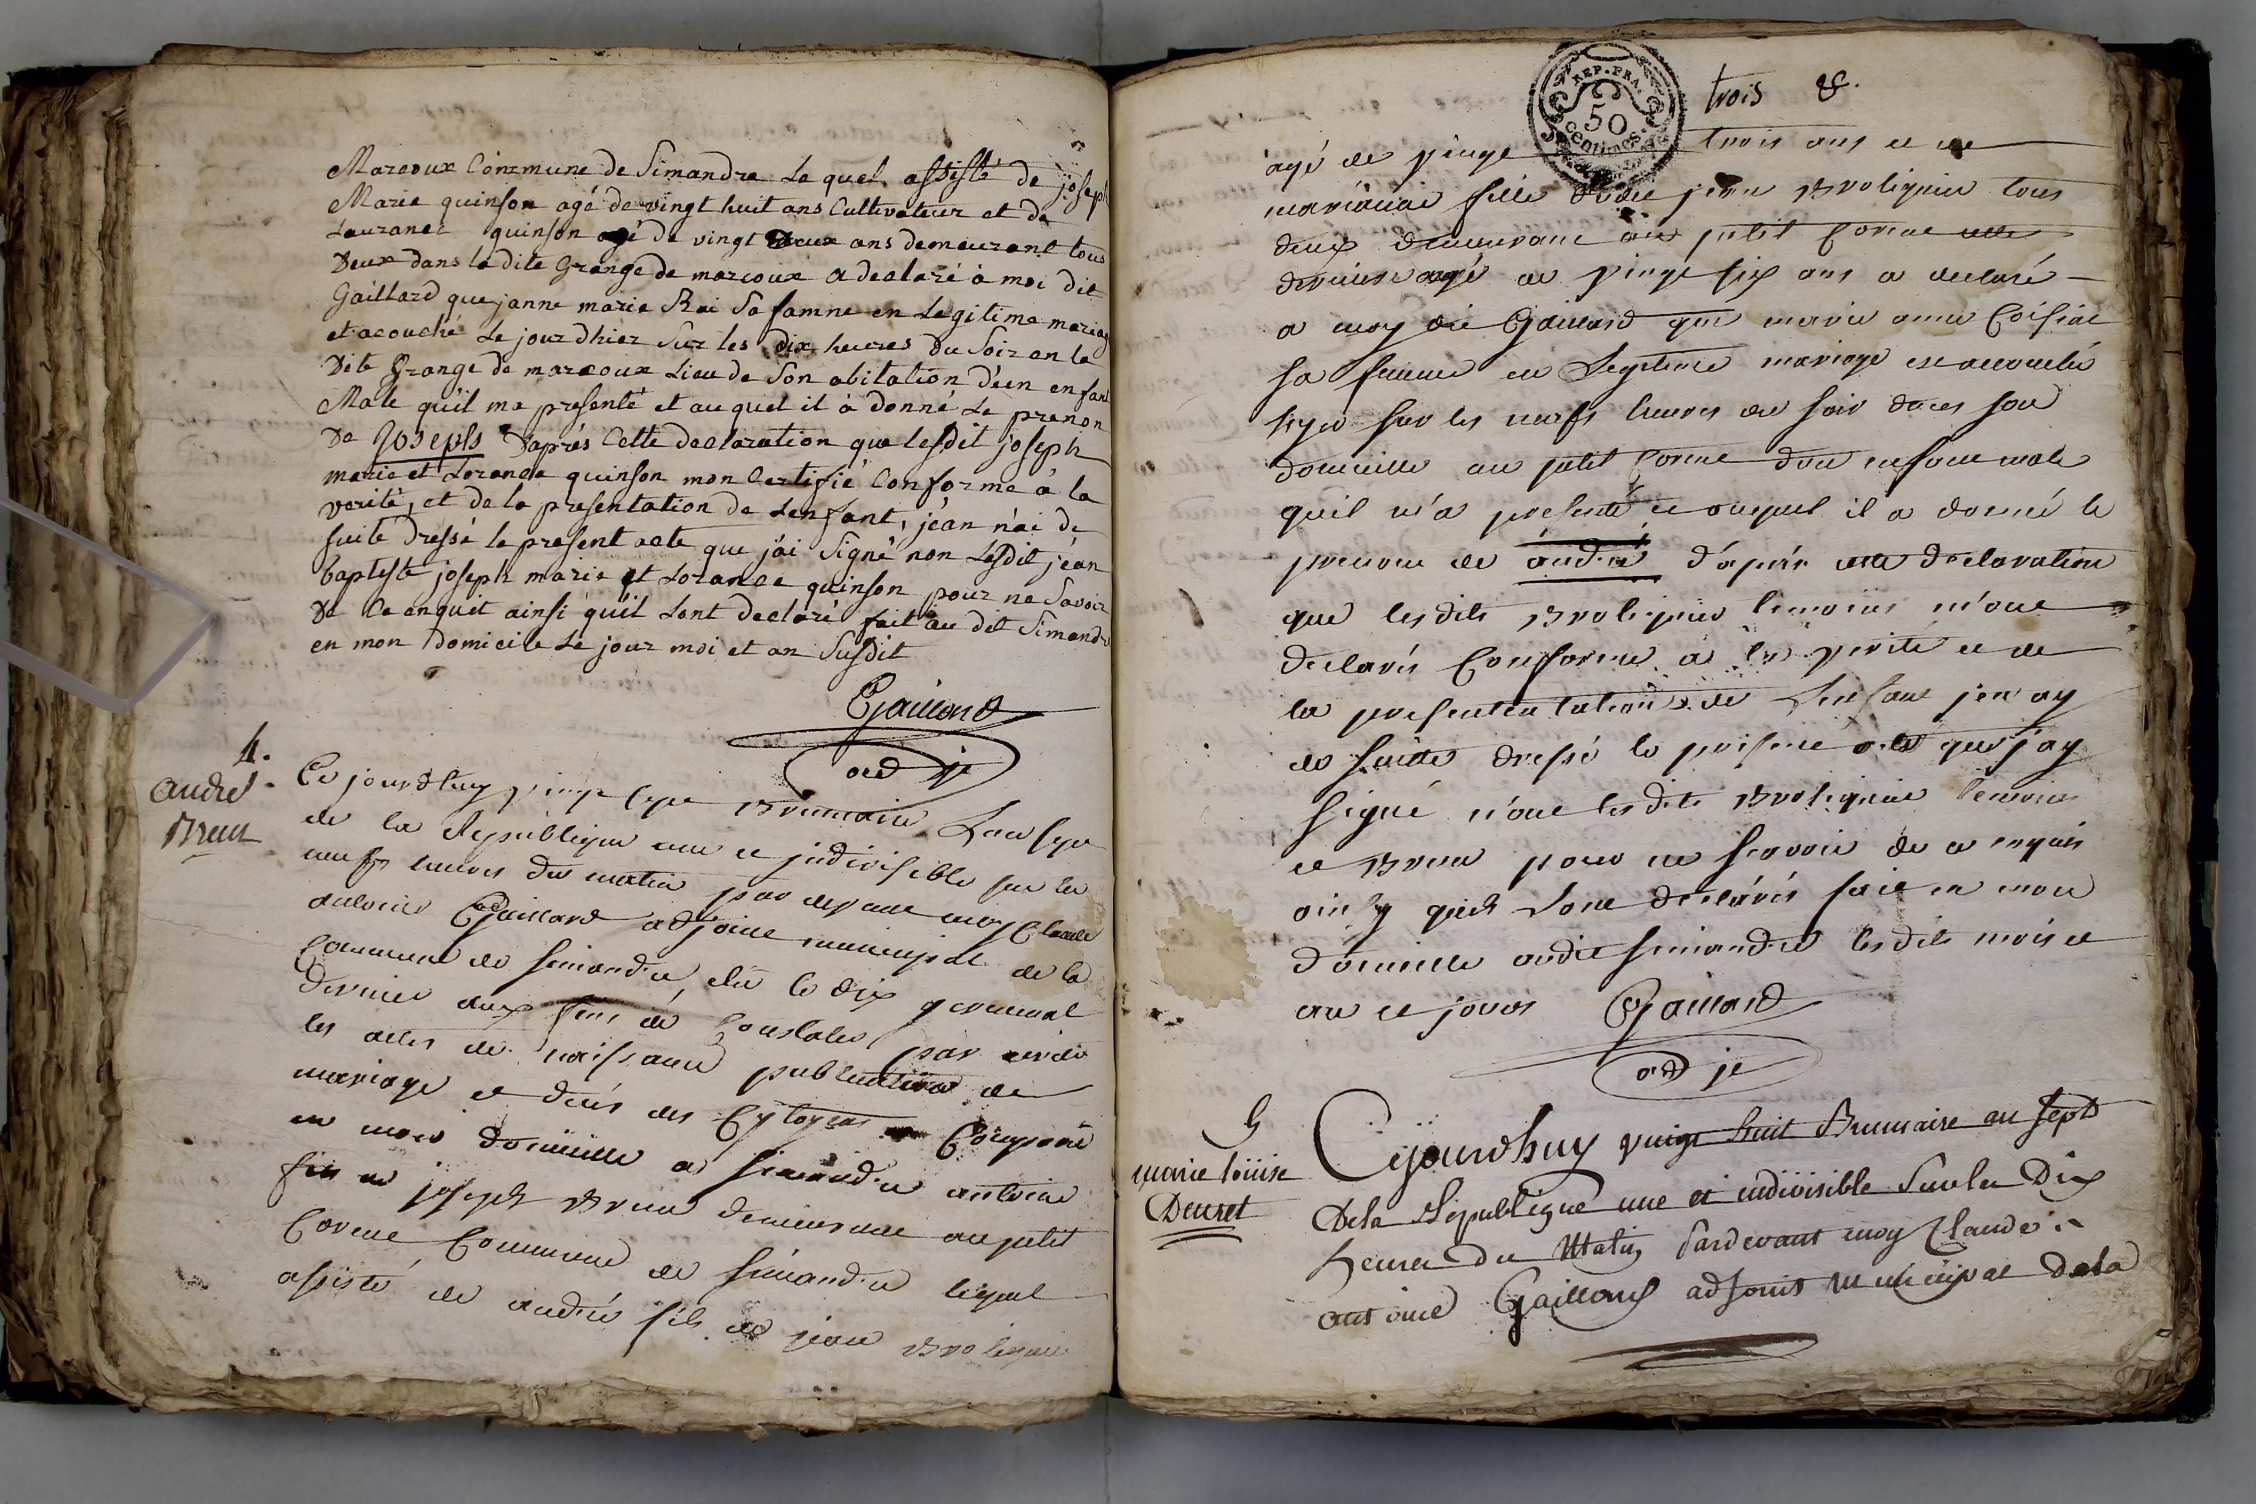 Marcoux Commune de Simandre Le quel assisté de joseph
Marie quinson agé de vingt huit ans Cultivateur et de
Laurance quinson agé de vingt deux ans demeurant tous
Deux dans la dite Grange de marcoux a declaré à moi dit
Gaillard que janne marie Rai Sa famne en Legitime mariage
et acouché Le jour dhier Sur les dix heures Du Soir en la
Dite Grange de marcoux Lieu de Son abitation d'un enfant
Male qu'il ma presenté et au quel il à donné Le prenon
De Joseph D'après Cette declaration que lesdit joseph
marie et Lorance quinson mon Certifié Conforme à la
verité, et de la presentation de Lenfant, jéan n'ai de
suite dressé le present acte que j'ai Signé non Lesdit jéan
baptiste joseph marie et Lorance quinson pour ne Savoir
De Ce enquit ainsi qu'il Lont declaré fait au dit Simandre
en mon Domicile Le jour moi et an Susdit
Gaillard
adj
4.
andré
Brun
Ce jourdhuy vingt sept Brumaire Lan sept
de la Republique une et indivisible sur les
neufs heures du matin par devant moy Claude
antoine Gaillard adjoint municipal de la
Commune de simandre, élu le dix germinal
dernier aux fins de Constater par
les actes de naissance publication de
mariage et décès des Cytoyens Comparu
en mon domicille a simandre antoine
fils de joseph Brun demeurant au petit
Corent Commune de simandre lequel
assisté de andré fils de jean Broliquier
trois &.
REP. FRA.
50
centimes.
agé de vingt trois ans et de
marianne fille dudit jean Broliquier tous
deux demeurant au petit Corent
derniere agé de vingt six ans a declaré
a moy dit Gaillard que marie anne Coisiat
sa femme en Legitime mariage est accouchée
hyer sur les neufs heures du soir dans son
domicille au petit Corent d'un enfant male
quil m'a presenté et auquel il a donné le
prenom de andré d'après cette declaration
que lesdits Broliquier temoins m'ont
declarés Conforme a la verité et de
la presentation de Lenfant jen ay
de suitte dressé le present acte que j'ay
signé n'ont lesdits Brolequier temoins
et Brun pour ne scavoir de ce enquis
ainsy quils Lont declarés fait en mon
domicille audit simandre lesdits mois et
an et jours Gaillard
adj
5
marie loüise
Deuret
Cejourdhuy vingt huit Brumaire an Sept
Dela Republique une et indivisible Sur les Dix
heures Du Matin Pardevant moy Claude
antoine Gaillard adjoint Municipal Dela